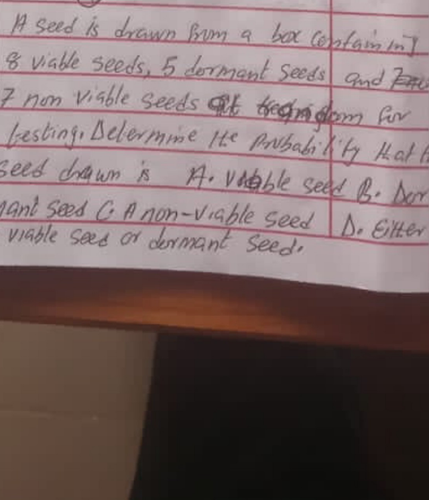 A seed is drawn from a box containing
8 viable seeds, 5 dormant seeds and
7 non viable seeds at random for
testing. Determine the Probability that
seed drawn is A. Viable seed B. Dor
mant seed C. A non-viable seed D. Either
viable seed or dormant seed.